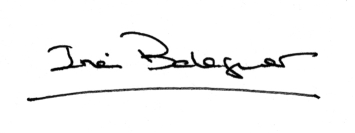 Inés Balaguer